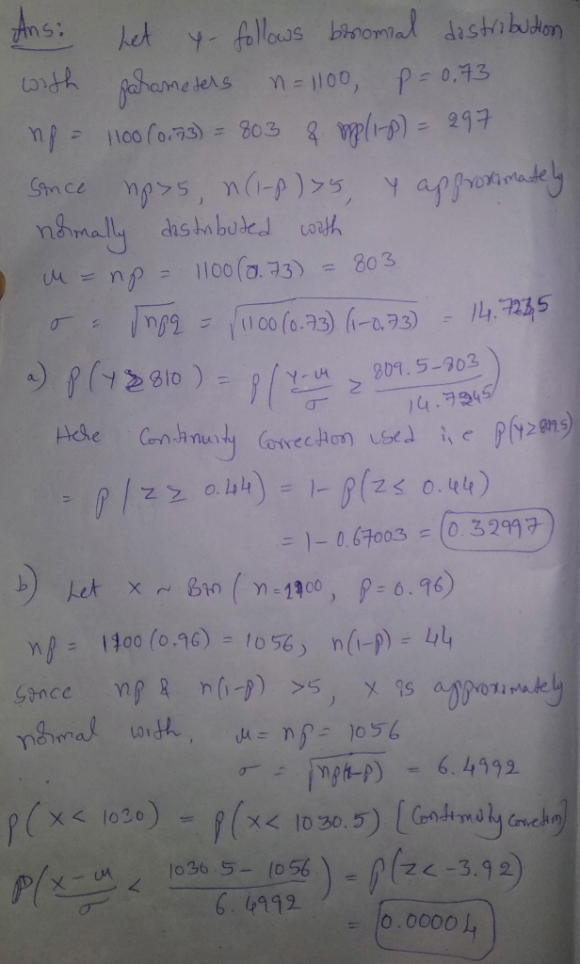 Ans: Let Y- follows binomial distribution
with parameters n=1100, p=0.73
np = 1100(0.73) = 803 & np(1-p) = 297
Since np>5, n(1-p)>5, Y approximately
normally distributed with
μ = np = 1100(0.73) = 803
σ = √npq = √1100(0.73)(1-0.73) = 14.7245
a) P(Y≥810) = P(Y-μ/σ ≥ 809.5-803/14.7245)
Here Continuity Correction used i.e P(Y≥809.5)
= P(Z≥ 0.44) = 1- P(Z≤ 0.44)
= 1-0.67003 = 0.32997
b) Let X ~ Bin(n=1100, p=0.96)
np = 1100(0.96) = 1056, n(1-p) = 44
Since np & n(1-p) >5, X is approximately
normal with, μ = np = 1056
σ = √np(1-p) = 6.4992
P(X< 1030) = P(X< 1030.5) [Continuity correction]
P(X-μ/σ < 1030.5-1056/6.4992) = P(Z<-3.92)
= 0.00004